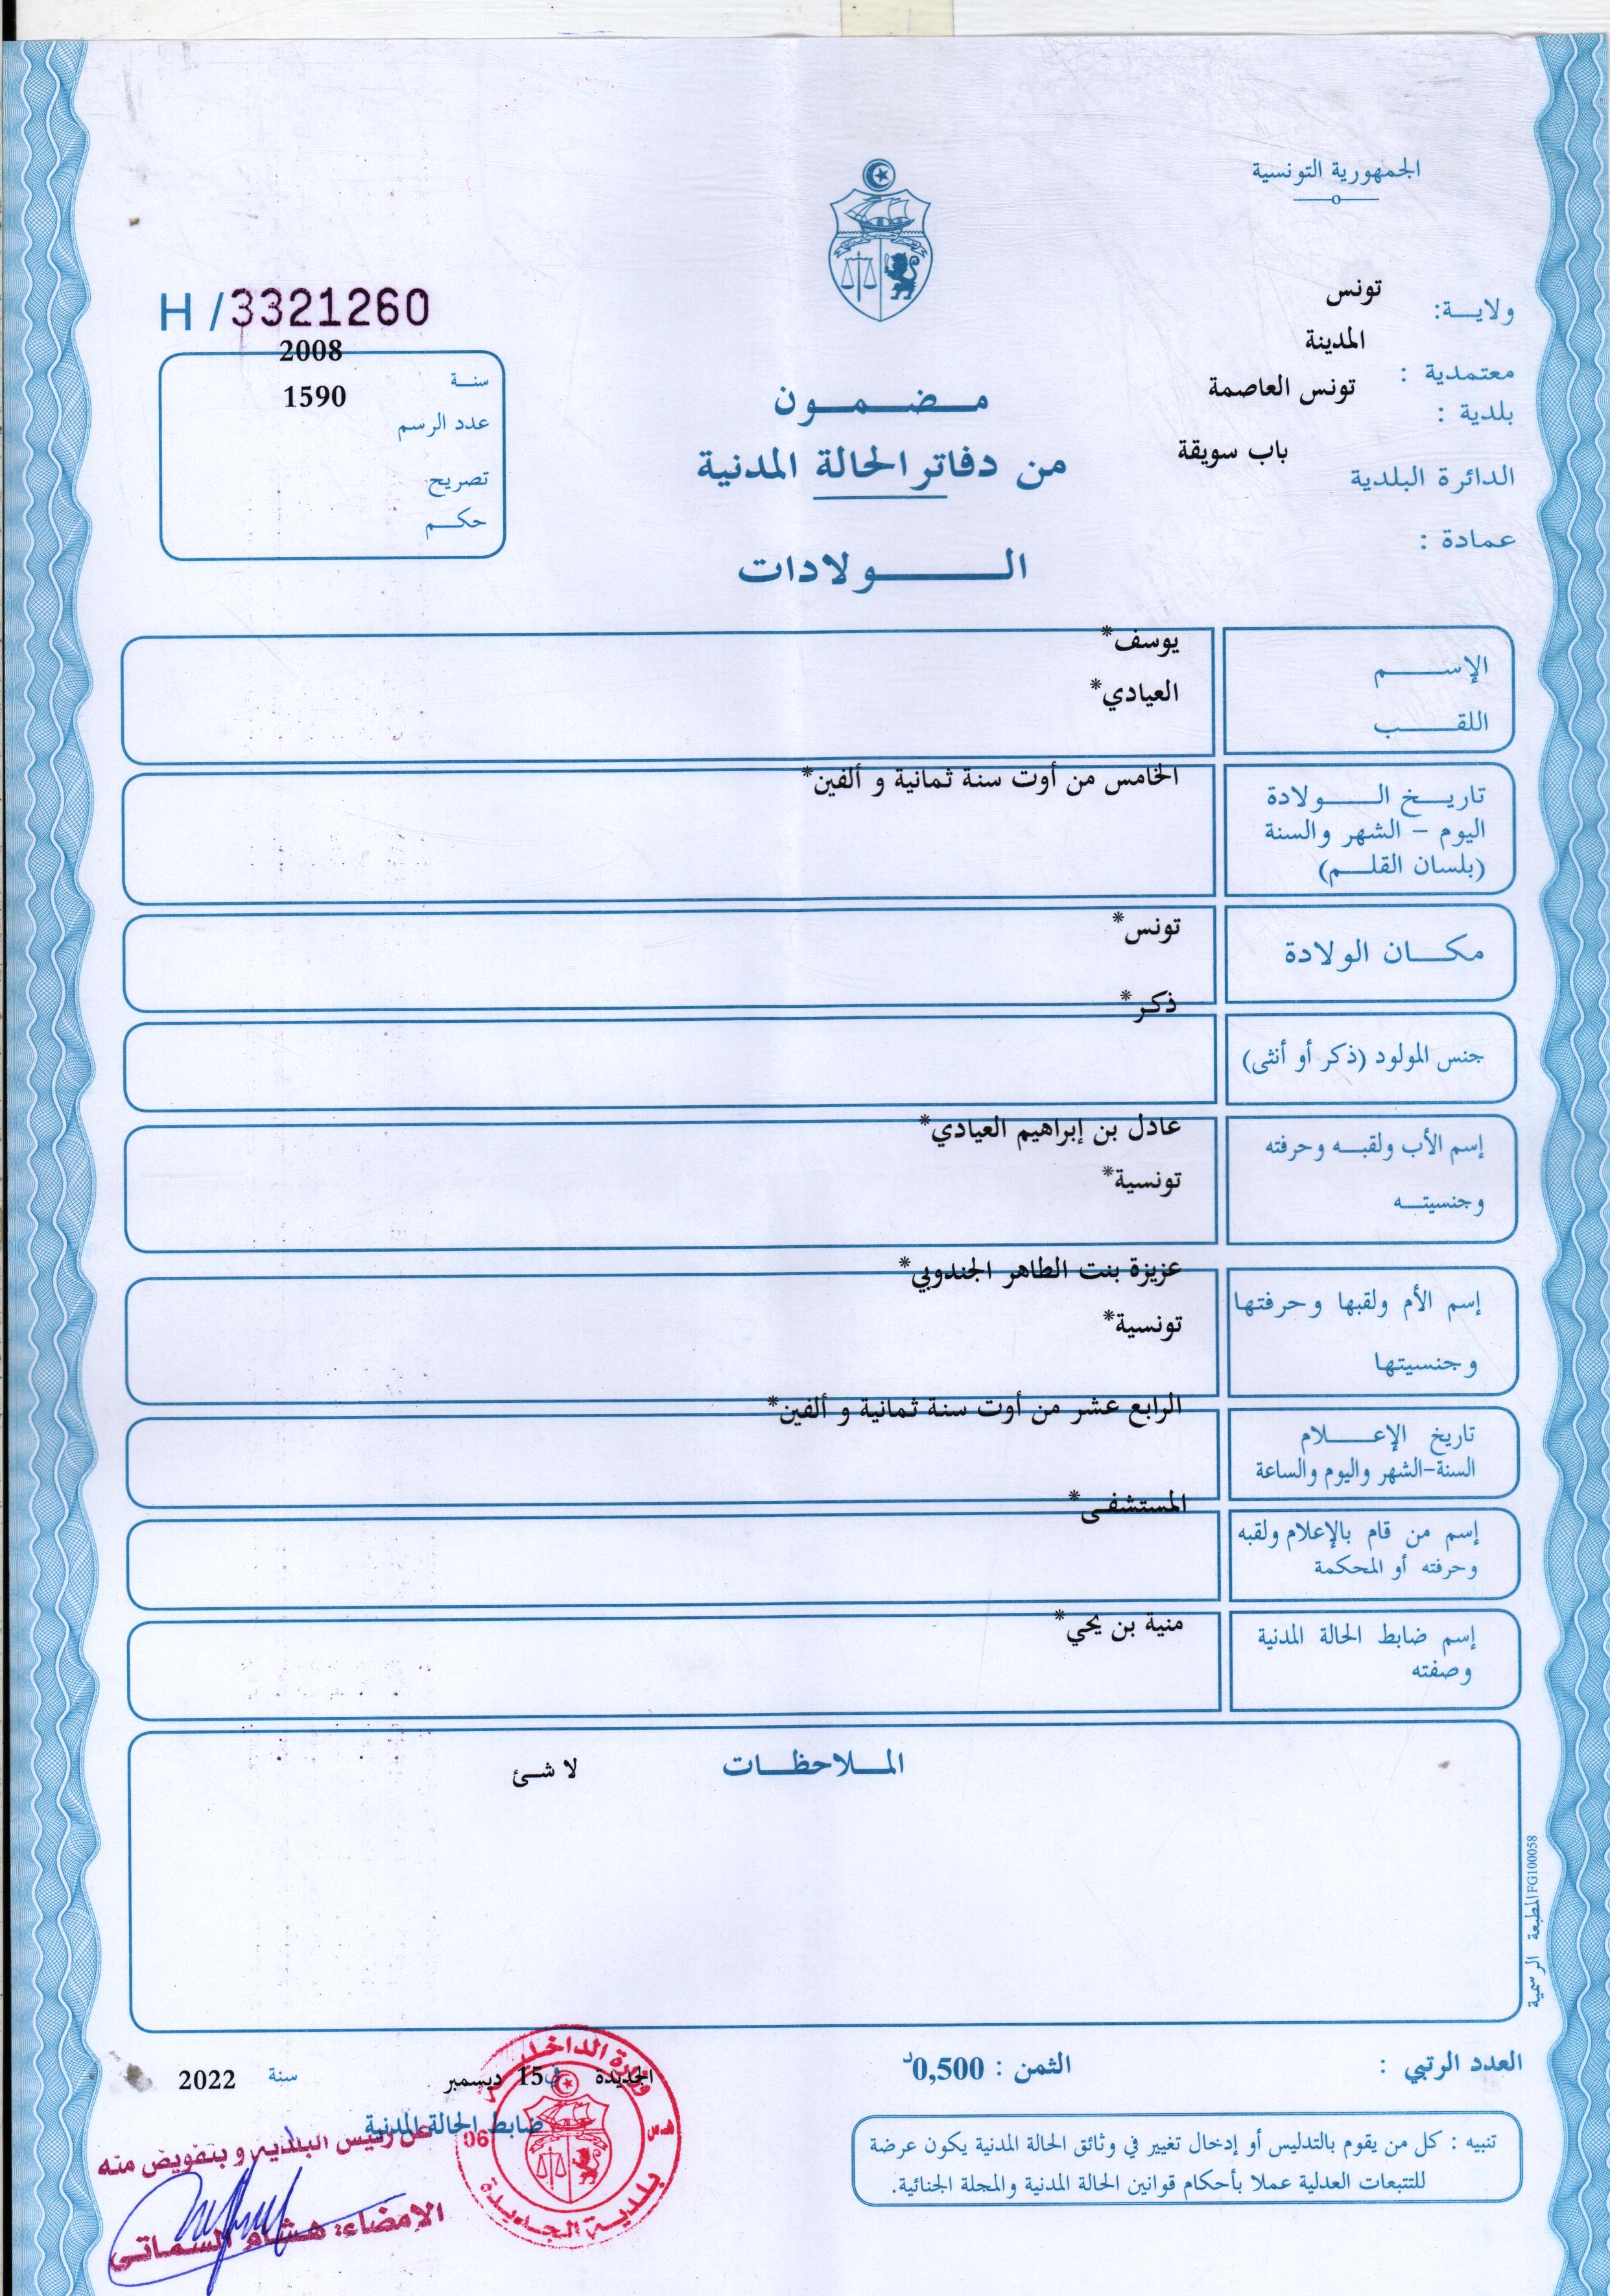 الجمهورية التونسية
ولايـــة: تونس
معتمدية : المدينة
بلدية : تونس العاصمة
الدائرة البلدية باب سويقة
عمادة :
H / 3321260
سنـة 2008
عدد الرسم 1590
تصريح
حكـــم
مـــضـــمـــون
من دفاتر الحالة المدنية
الـــــولادات
الإســـــم يوسف*
اللقـــــب العيادي*
تاريـــخ الـــــولادة
اليوم – الشهر والسنة
(بلسان القلـــم)
الخامس من أوت سنة ثمانية و ألفين*
مكـــان الولادة تونس*
جنس المولود (ذكر أو أنثى) ذكر*
إسم الأب ولقبـــه وحرفته عادل بن إبراهيم العيادي*
وجنسيتـــه تونسية*
إسم الأم ولقبها وحرفتها عزيزة بنت الطاهر الجندوبي*
وجنسيتها تونسية*
تاريخ الإعـــــلام
السنة-الشهر واليوم والساعة
الرابع عشر من أوت سنة ثمانية و ألفين*
إسم من قام بالإعلام ولقبه
وحرفته أو المحكمة
المستشفى*
إسم ضابط الحالة المدنية
وصفته
منية بن يحي*
المـــلاحظـــات
لا شئ
المطبعة الرسمية FG100058
العدد الرتبي :
الثمن : 0,500د
الجديدة في 15 ديسمبر سنة 2022
ضابط الحالة المدنية
عن رئيس البلدية و بتفويض منه
الامضاء: هشام السماتي
وزارة الداخلية
06
بلدية الجديدة
تنبيه : كل من يقوم بالتدليس أو إدخال تغيير في وثائق الحالة المدنية يكون عرضة
للتتبعات العدلية عملا بأحكام قوانين الحالة المدنية والمجلة الجنائية.